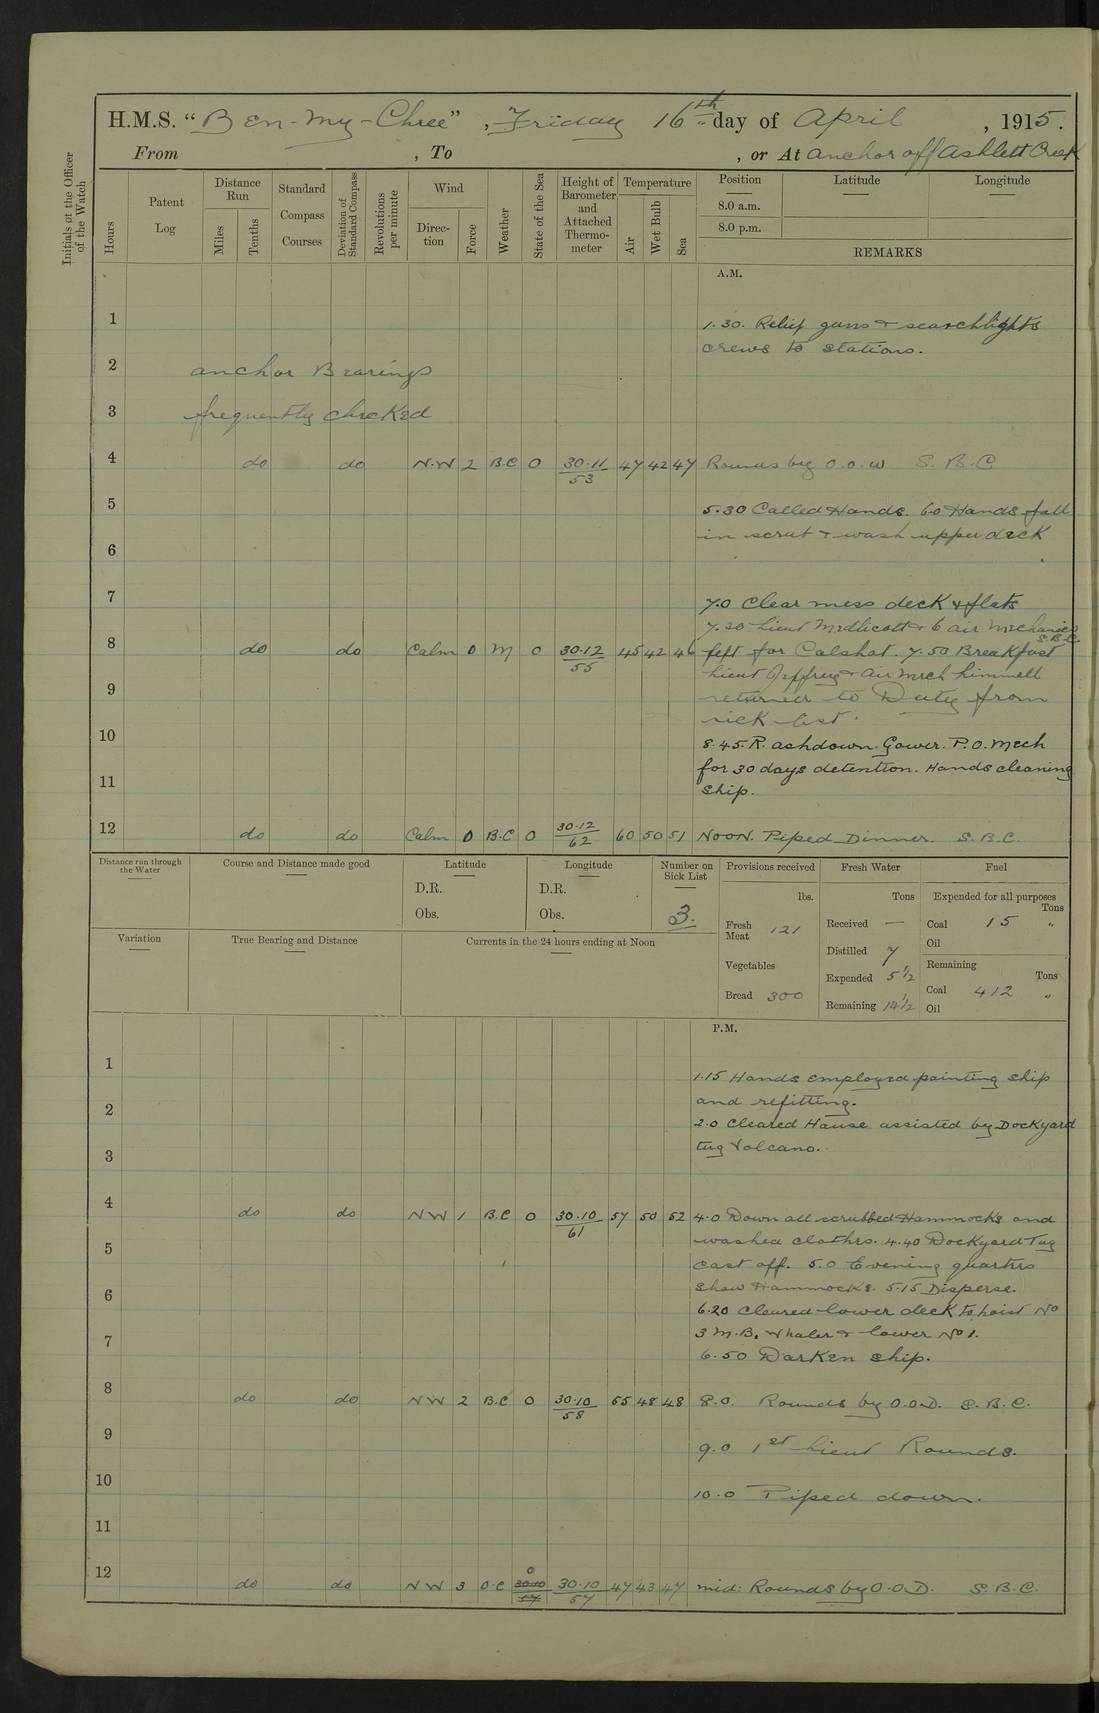 H.M.S. “Ben-my-Chree”, Friday 16th day of April, 1915.
From , To , or At anchor off Ashlett Creek
Initials of the Officer of the Watch
Hours
Patent Log
Distance Run
Miles
Tenths
Standard Compass Courses
Deviation of Standard Compass
Revolutions per minute
Wind
Direc-tion
Force
Weather
State of the Sea
Height of Barometer and Attached Thermo-meter
Temperature
Air
Wet Bulb
Sea
Position
8.0 a.m.
8.0 p.m.
Latitude
Longitude
REMARKS
A.M.
1
1.30. Relief guns & searchlights
crews to stations.
2
anchor Bearings
3
frequently checked
4 do do N.W 2 B.C 0 30.11/53 47 42 47 Rounds by O.O.W S.B.C
5
5.30 Called Hands. 6.0 Hands fall
in scrub & wash upper deck
6
7
7.0 Clear mess deck & flats
7.20 Lieut Medlicott & 6 air mechanics
S.B.C.
8 do do Calm 0 M 0 30.12/55 45 42 46 left for Calshot. 7.50 Breakfast
Lieut Jeffrey & Air Mech Kimmell
9
returned to Duty from
sick list.
10
8.45. R. Ashdown. Gower. P.O. Mech
for 30 days detention. Hands cleaning
11
ship.
12 do do Calm 0 B.C 0 30.12/62 60 50 51 NOON. Piped Dinner. S.B.C.
Distance run through the Water
Course and Distance made good
Latitude
D.R.
Obs.
Longitude
D.R.
Obs.
Number on Sick List
3.
Provisions received
lbs.
Fresh Meat 121
Vegetables
Bread 300
Fresh Water
Tons
Received —
Distilled 7
Expended 5½
Remaining 14½
Fuel
Expended for all purposes
Tons
Coal 15 „
Oil
Remaining
Tons
Coal 412 „
Oil
Variation
True Bearing and Distance
Currents in the 24 hours ending at Noon
P.M.
1
1.15 Hands employed painting ship
and refitting.
2
2.0 Cleared Hause assisted by Dockyard
3
tug Volcano.
4 do do NW 1 B.C 0 30.10/61 57 50 52 4.0 Down all scrubbed Hammocks and
washed clothes. 4.40 Dockyard Tug
5
cast off. 5.0 Evening quarters
show Hammocks. 5.15 Disperse.
6
6.20 Cleared lower deck to hoist No
3 M.B. Whaler & lower No 1.
7
6.50 Darken ship.
8 do do NW 2 B.C 0 30.10/58 55 48 48 8.0. Rounds by O.O.D. S.B.C.
9
9.0 1st Lieut Rounds.
10
10.0 Piped down.
11
12 do do NW 3 O.C 0 30.10/57 30.10/57 47 43 47 mid: Rounds by O.O.D. S.B.C.